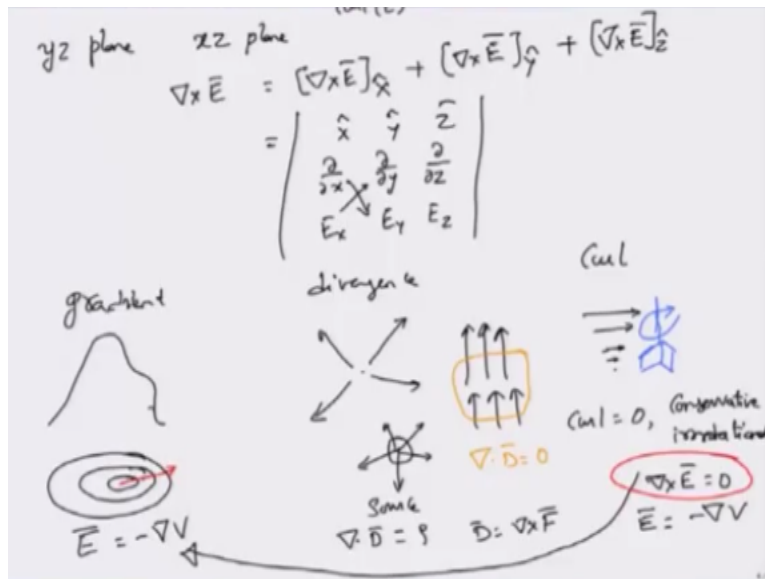 yz plane xz plane
∇×E̅ = [∇×E̅]x̂ + [∇×E̅]ŷ + [∇×E̅]ẑ
= | x̂ ŷ ẑ |
∂/∂x ∂/∂y ∂/∂z
Ex Ey Ez
gradient divergence Curl
Curl = 0, Conservative
irrotational
∇·D̅ = 0
∇×E̅ = 0
Source
E̅ = -∇V
∇·D̅ = ρ D̅ = ∇×F̅ E̅ = -∇V